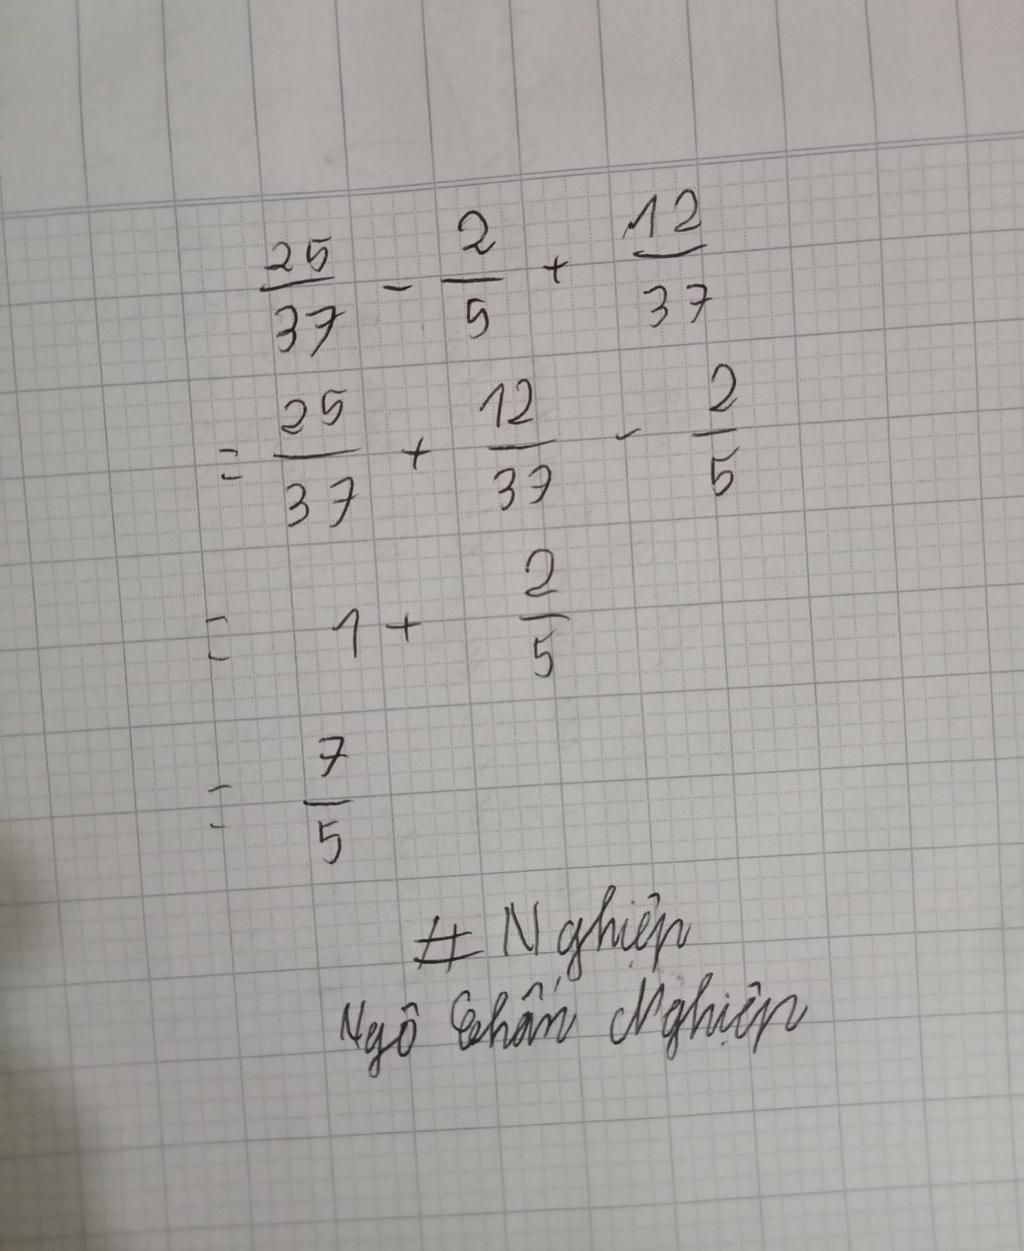 25/37 - 2/5 + 12/37
= 25/37 + 12/37 - 2/5
= 1 + 2/5
= 7/5
# Nghiệp
Ngô Chấn Nghiệp